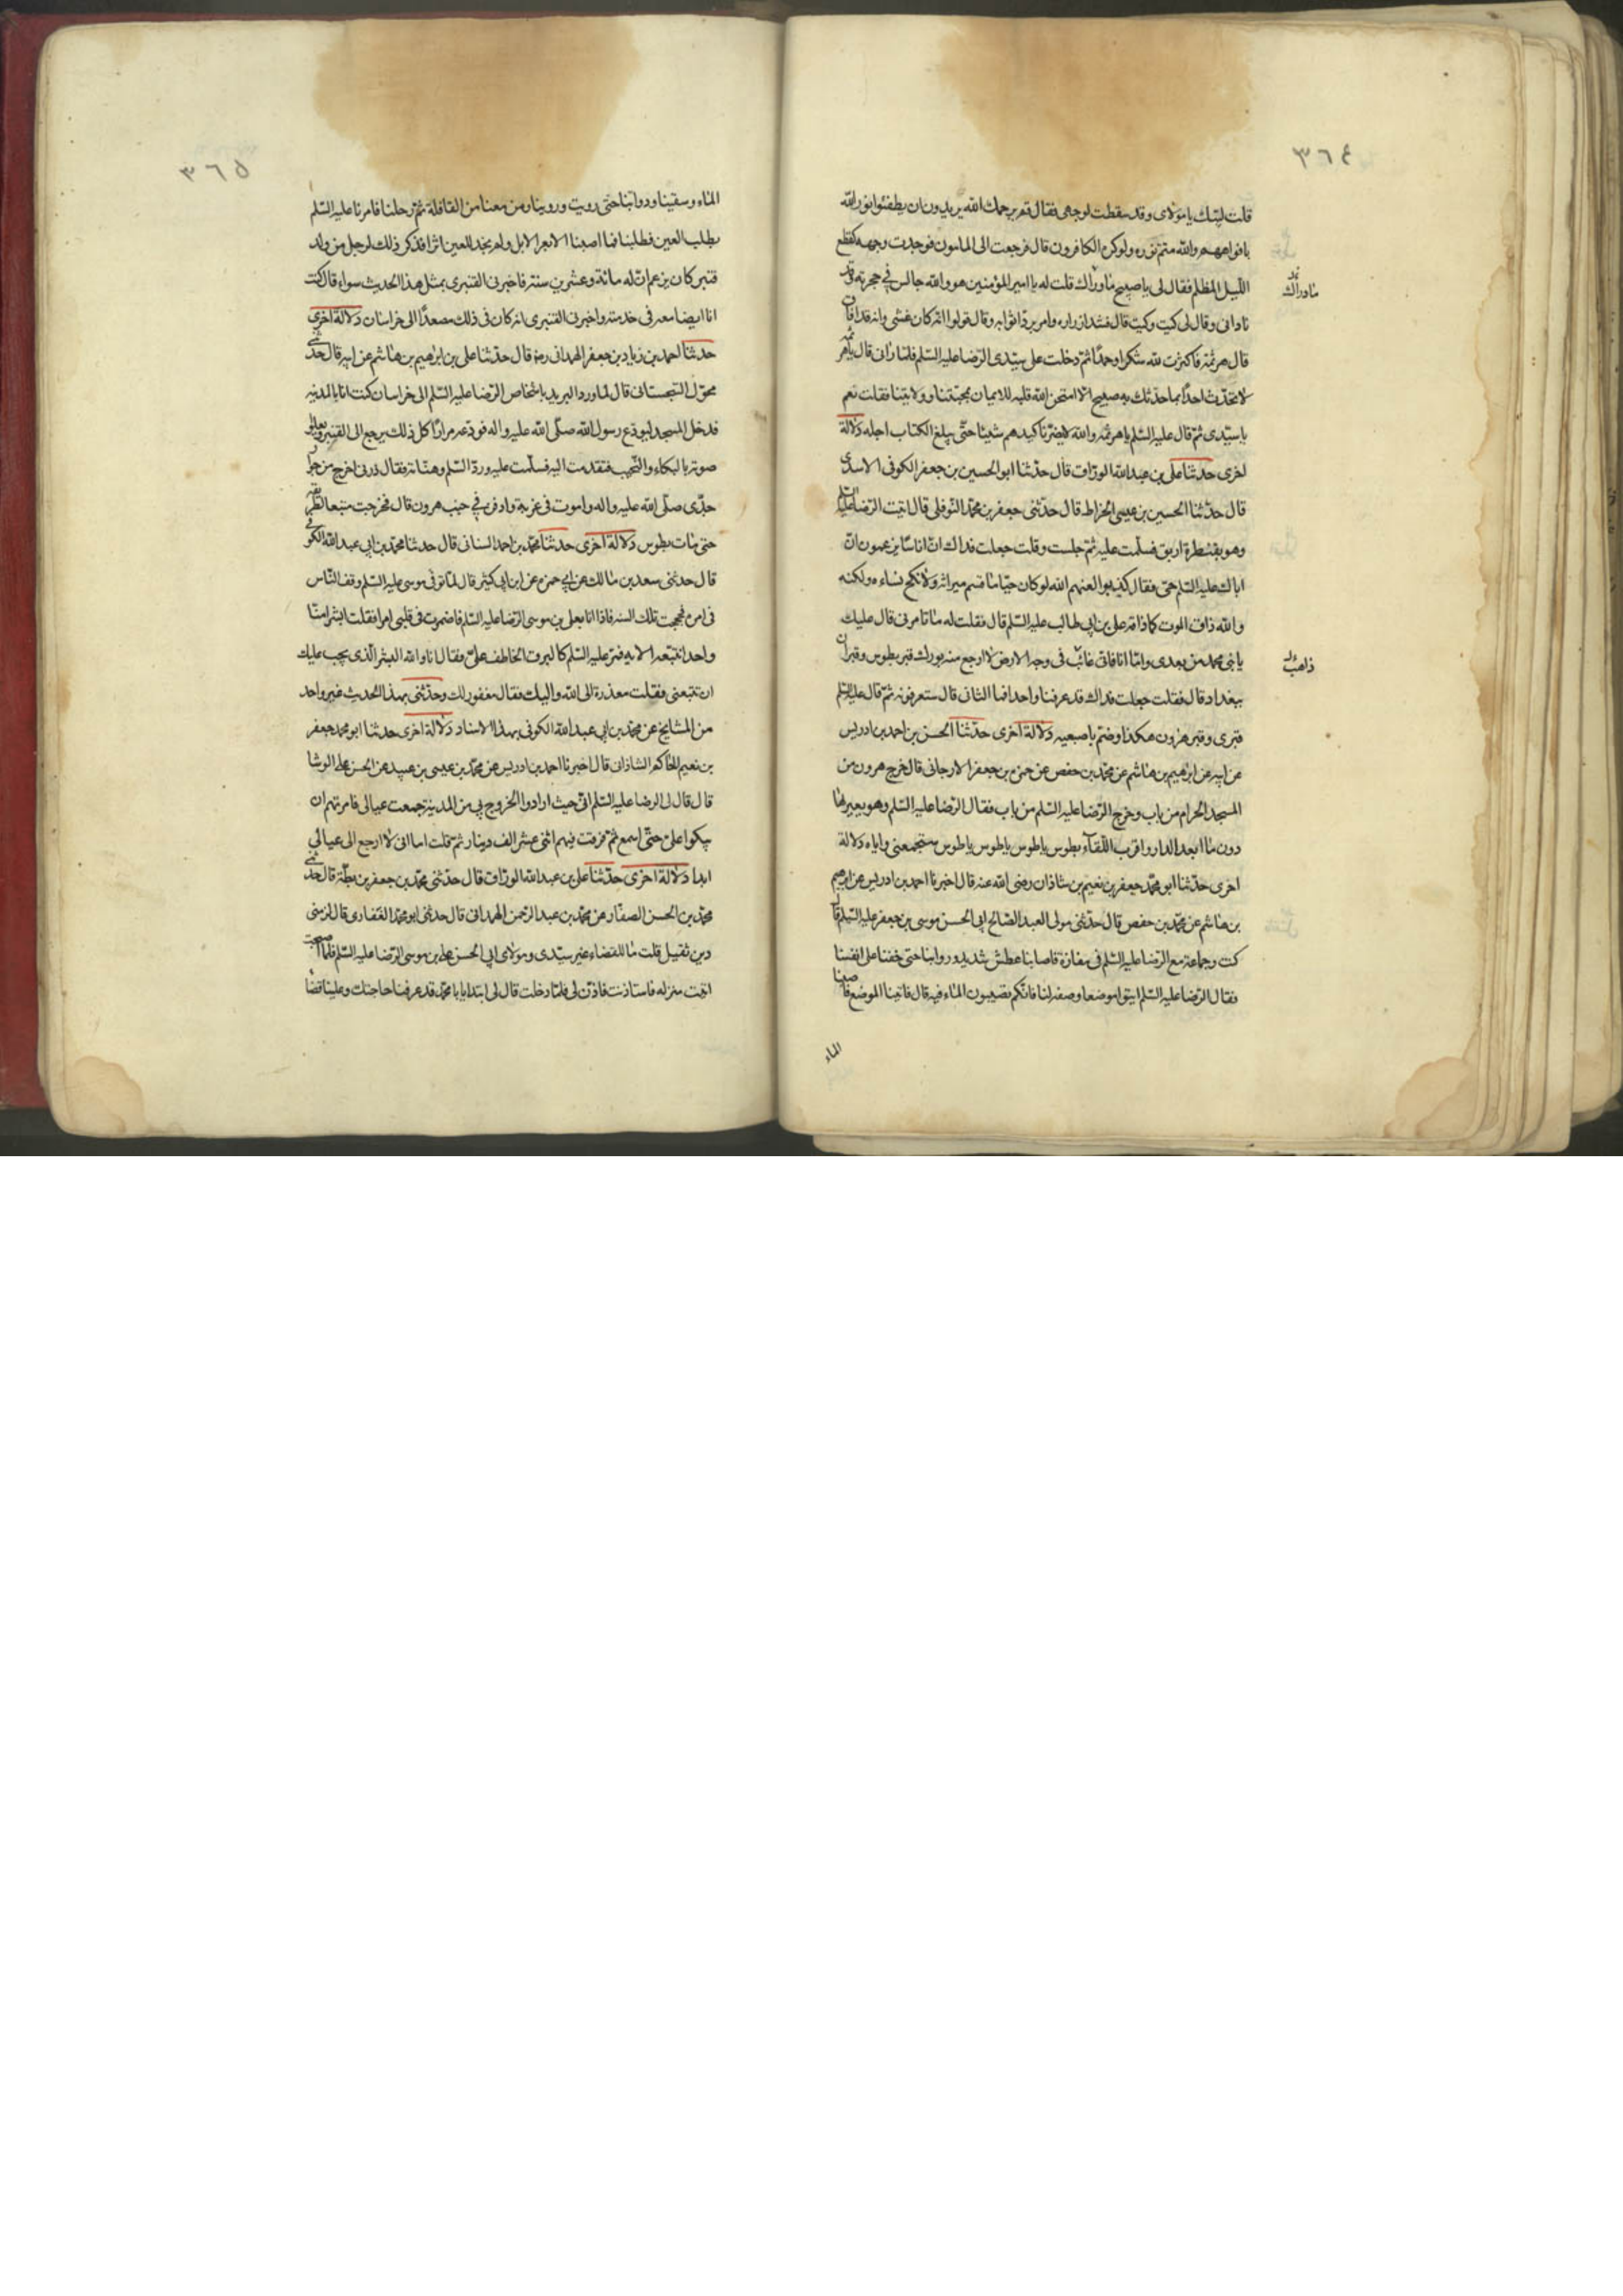 ٣٦٤
قلت لبيك يا مولاى وقد سقطت لوجهى فقال قم يرحمك الله يريدون ان يطفئوا نور الله
بافواههم والله متم نوره ولو كره الكافرون قال فرجعت الى المامون فوجدت وجهه كقطع
الليل المظلم فقال لى يا صبيح ما وراك قلت له يا امير المؤمنين هو والله جالس فى حجرته وقد
ناد انى وقال لى كيت وكيت قال فشد ازراره وامر برد اثوابه وقال قولوا انه كان غشى وانه قد افاق
قال هرثمة فاكثرت لله شكرا وحمدا ثم دخلت على سيدى الرضا عليه السلم فلما رانى قال يا هرثمة
لا تحدث احدا بما حدثك به صبيح الا من امتحن الله قلبه للايمان بمحبتنا وولايتنا فقلت نعم
يا سيدى ثم قال عليه السلم يا هرثمه والله لا يضرنا كيدهم شيئا حتى يبلغ الكتاب اجله دلالة
اخرى حدثنا على بن عبد الله الوراق قال حدثنا ابو الحسين بن جعفر الكوفى الاسدى
قال حدثنا الحسين بن عيسى الخراط قال حدثنى جعفر بن محمد النوفلى قال اتيت الرضا عليه السلم
وهو بقنطرة اربق فسلمت عليه ثم جلست وقلت جعلت فداك ان اناسا يزعمون ان
اباك عليه السلم حى فقال كذبوا لعنهم الله لو كان حيا ما قسم ميراثه ولا نكح نساءه ولكنه
والله ذاق الموت كما ذاقه على بن ابى طالب عليه السلم قال فقلت له ما تامرنى قال عليك
يا بنى محمد من بعدى واما انا فانى غائب فى وجه الارض لا ارجع منه بورك قبر بطوس وقبران
ببغداد قال فقلت جعلت فداك قد عرفنا واحدا فما الثانى قال ستعرفونه ثم قال عليه السلم
قبرى وقبر هارون هكذا وضم باصبعيه دلالة اخرى حدثنا الحسن بن احمد بن ادريس
عن ابيه عن ابرهيم بن هاشم عن محمد بن حفص عن حمزة بن جعفر الارجانى قال خرج هرون من
المسجد الحرام من باب وخرج الرضا عليه السلم من باب فقال الرضا عليه السلم وهو يعبر لها
دون ما ابعد الدار واقرب اللقاء بطوس يا طوس يا طوس يا طوس ستجمعنى واياه دلالة
اخرى حدثنا ابو محمد جعفر بن نعيم بن شاذان رضى الله عنه قال اخبرنا احمد بن ادريس عن ابرهيم
بن هاشم عن محمد بن حفص قال حدثنى مولى العبد الصالح ابى الحسن موسى بن جعفر عليه السلم قال
كنت وجماعة مع الرضا عليه السلم فى مفازة فاصابنا عطش شديد ودوابنا حتى خفنا على انفسنا
فقال الرضا عليه السلم ايتوا موضعا وصفه لنا فانكم تصيبون الماء فيه قال فاتينا الموضع فاصبنا
الماء
ما وراك
ذاهب
٣٦٥
الماء وسقينا ودوابنا حتى رويت وروينا ومن معنا من القافلة ثم رحلنا فامرنا عليه السلم
بطلب العين فطلبنا فما اصبنا الا بعر الابل ولم نجد للعين اثرا فذكر ذلك لرجل من ولد
قنبر كان يزعم ان له مائة وعشرين سنة فاخبرنى القنبرى بمثل هذا الحديث سواء قال كنت
انا ايضا معه فى خدمته واخبرنى القنبرى انه كان فى ذلك مصعدا الى خراسان دلالة اخرى
حدثنا احمد بن زياد بن جعفر الهمدانى رض قال حدثنا على بن ابرهيم بن هاشم عن ابيه قال حدثنى
محول السجستانى قال لما ورد البريد باشخاص الرضا عليه السلم الى خراسان كنت انا بالمدينه
فدخل المسجد ليودع رسول الله صلى الله عليه واله فودعه مرارا كل ذلك يرجع الى القبر ويعلو
صوته بالبكاء والنحيب فتقدمت اليه فسلمت عليه ورد السلم وهناته فقال ذرنى اخرج من جوار
جدى صلى الله عليه واله واموت فى غربة وادفن فى جنب هرون قال فخرجت متبعا لطريقه
حتى مات بطوس دلالة اخرى حدثنا محمد بن احمد السنانى قال حدثنا محمد بن ابى عبد الله الكوفى
قال حدثنى سعد بن مالك عن ابى حمزه عن ابن ابى كثير قال لما توفى موسى عليه السلم وقف الناس
فى امره فحججت تلك السنه فاذا انا بعلى بن موسى الرضا عليه السلم فاضمرت فى قلبى امرا فقلت ابشرا منا
واحدا نتبعه الايه فمر عليه السلم كالبرق الخاطف على فقال انا والله البشر الذى يجب عليك
ان تتبعنى فقلت معذرة الى الله واليك فقال مغفور لك وحدثنى بهذا الحديث غير واحد
من المشايخ عن محمد بن ابى عبد الله الكوفى بهذا الاسناد دلالة اخرى حدثنا ابو محمد جعفر
بن نعيم الحاكم الشاذانى قال اخبرنا احمد بن ادريس عن محمد بن عيسى بن عبيد عن الحسن بن على الوشا
قال قال لى الرضا عليه السلم انى حيث ارادوا الخروج بى من المدينة جمعت عيالى فامرتهم ان
يبكوا على حتى اسمع ثم فرقت فيهم اثنى عشر الف دينار ثم قلت اما انى لا ارجع الى عيالى
ابدا دلالة اخرى حدثنا على بن عبد الله الوراق قال حدثنى محمد بن جعفر بن بطة قال حدثنى
محمد بن الحسن الصفار عن محمد بن عبد الرحمن الهمدانى قال حدثنى ابو محمد الغفارى قال لزمنى
دين ثقيل قلت ما للقضاء غير سيدى ومولاى ابى الحسن على بن موسى الرضا عليه السلم فلما اصبحت
اتيت منزله فاستاذنت فاذن لى فلما دخلت قال لى ابتداء يا با محمد قد عرفنا حاجتك وعلينا قضا